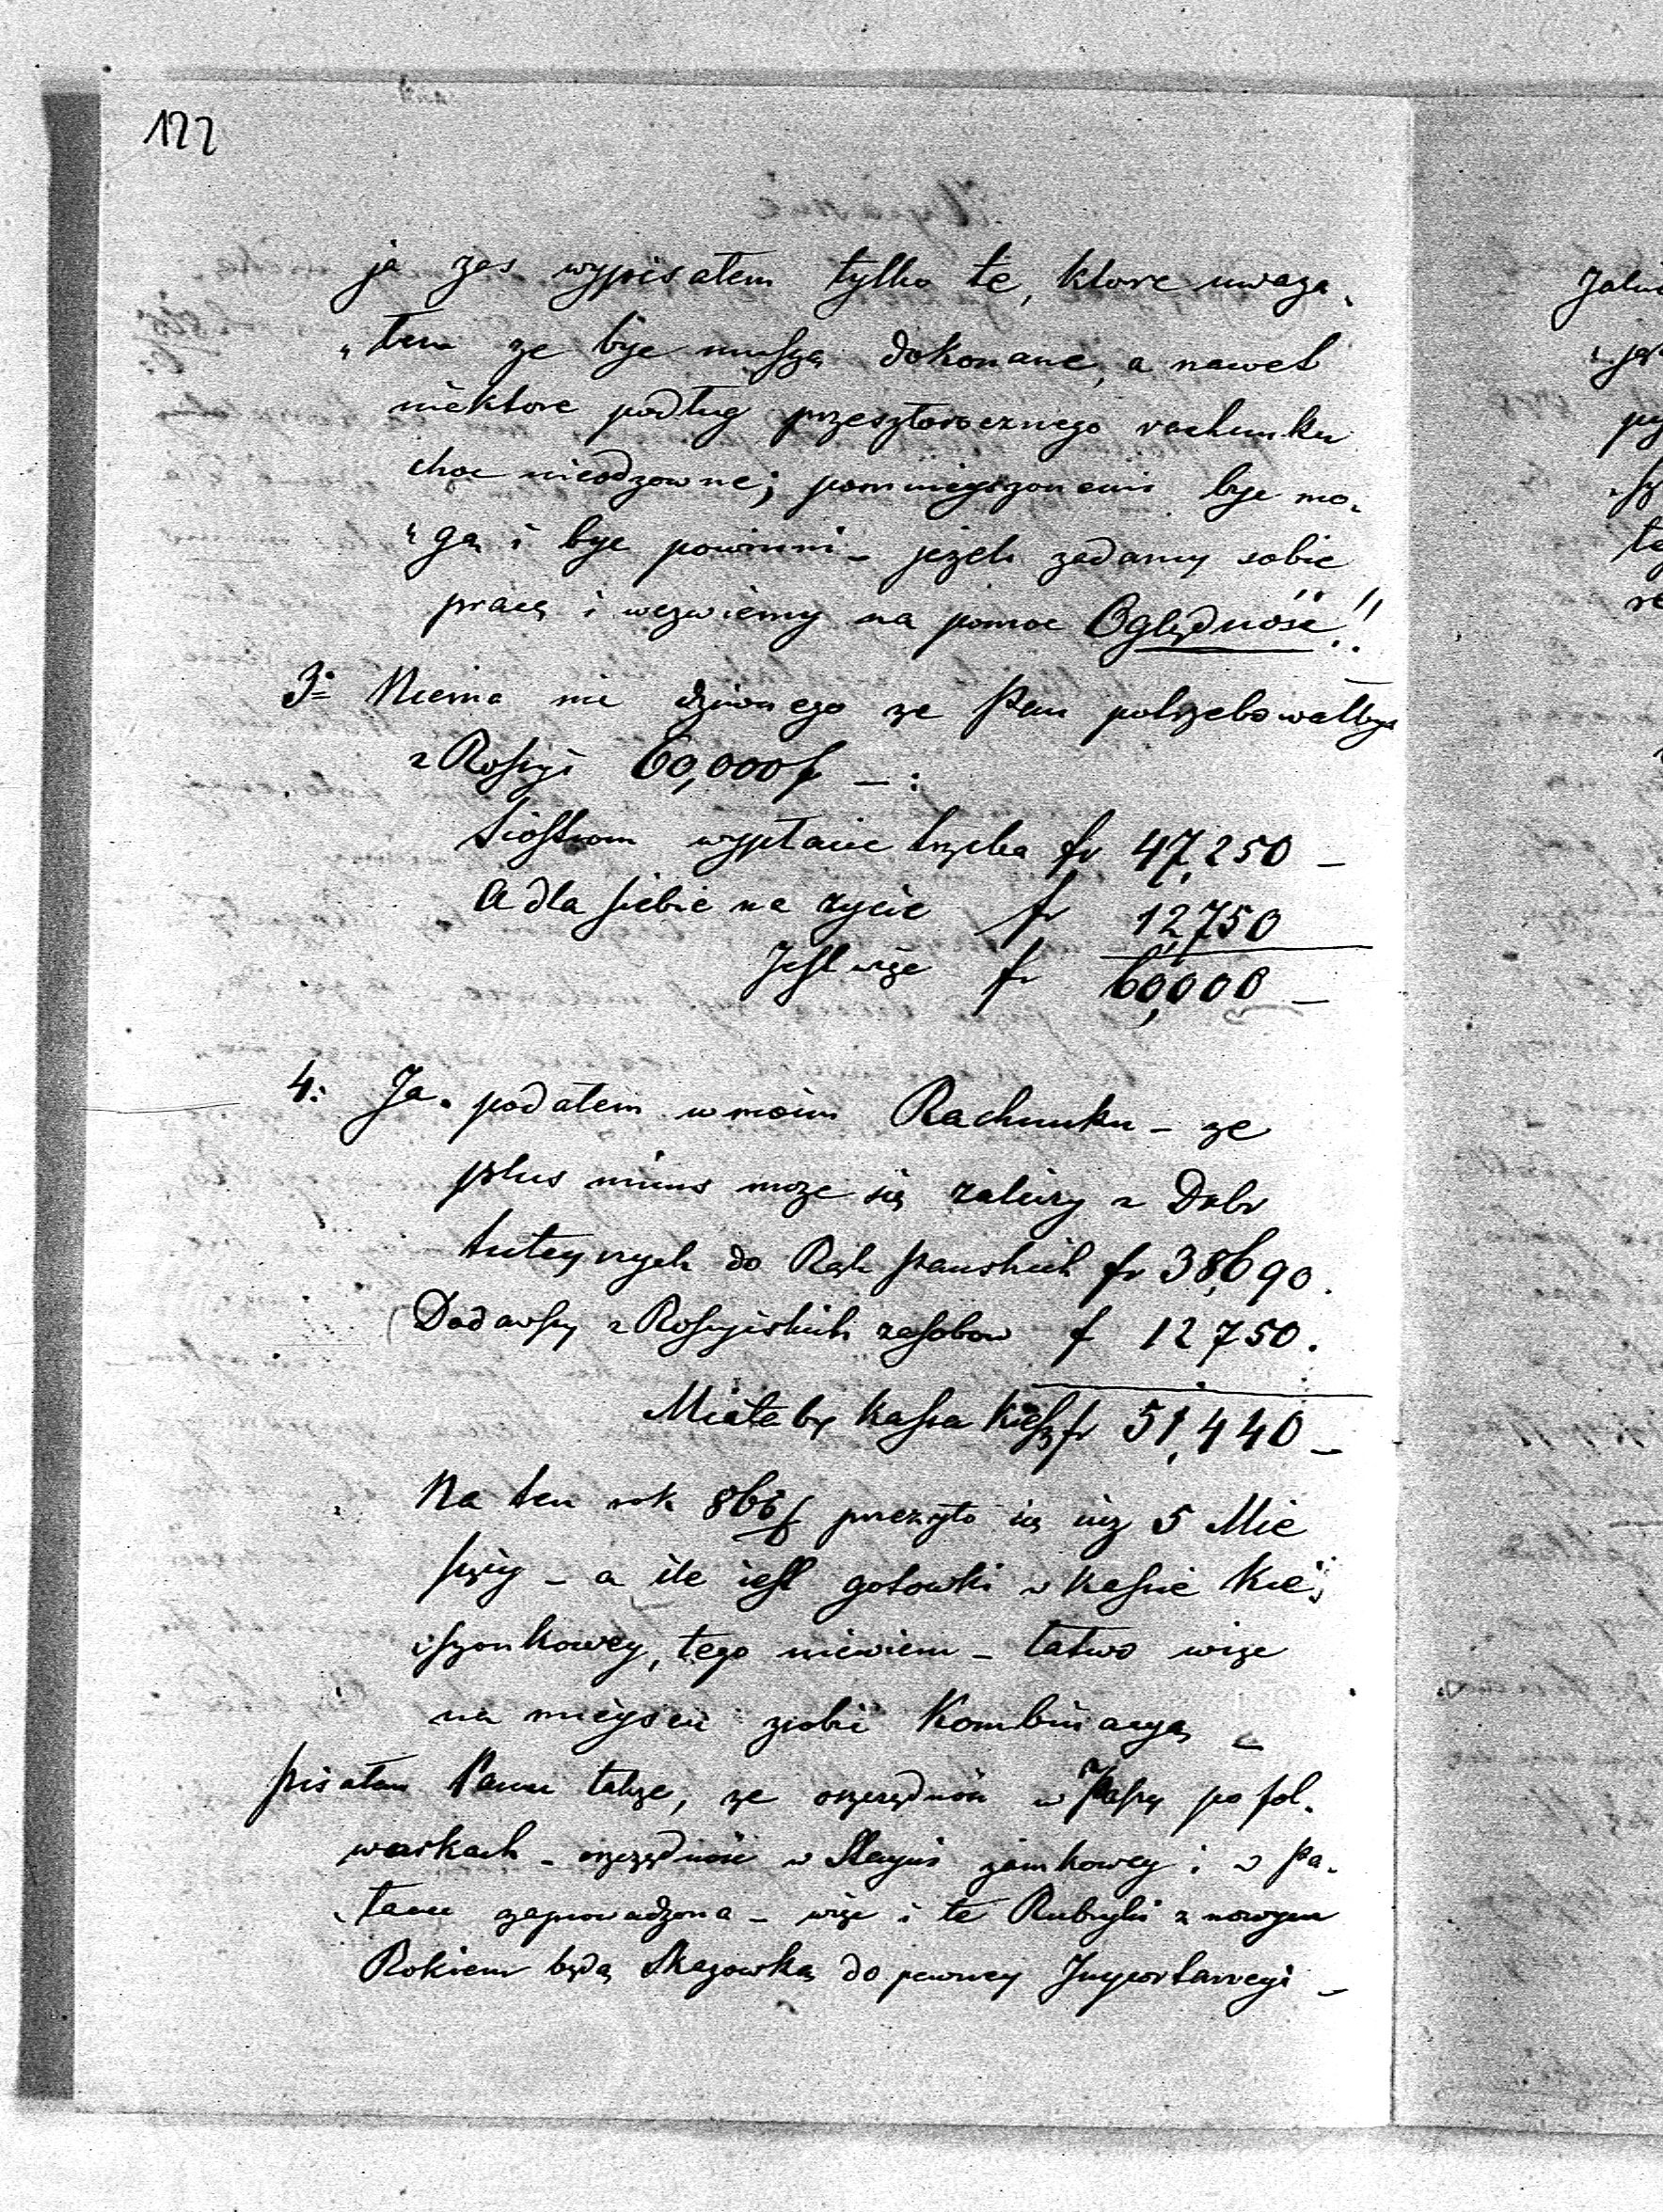 122
ja zas wypisałem tylko te, ktore uwaza„
„łem ze byc muszą dokonane, a nawet
niektore podług przeszłorocznego rachunku
choc nieodzowne; pomnieyszonemi byc mo„
„gą i byc powinni – jezeli zadamy sobie
pracą i wezwiemy na pomoc Oględność!!
3o Niema nic dziwnego ze Pan potrzebowałbys
z Rossyi 60,000 f –:
Siostrom wypłacic trzeba fr 47,250 –
A dla siebie na zycie fr 12,750
Jest więc fr 60,000 –
4: Ja podałem w moim Rachunku – ze
plus minus moze się zalizy z Dobr
tuteyszych do Rąk Pańskich fr 38,690.
Dodawszy z Rossyiskich zasobow f 12750.
Miała by Kassa Kiesz fr 51,440 –
Na ten rok 865/6 przezyto się iuz 5 Mie
sięcy – a ile iest gotowki w Kassie Kie„
„szonkowey, tego niewiem – łatwo więc
na mieyscu zrobic Kombinacyą –
Pisałem Panu takze, ze oszczędność w Paszy po fol„
warkach – oszczędność w Stayni zamkowey i w Pa„
„łacu zaprowadzona – więc i te Rubryki z nowym
Rokiem będą Skazowką do pewney Importancyi –